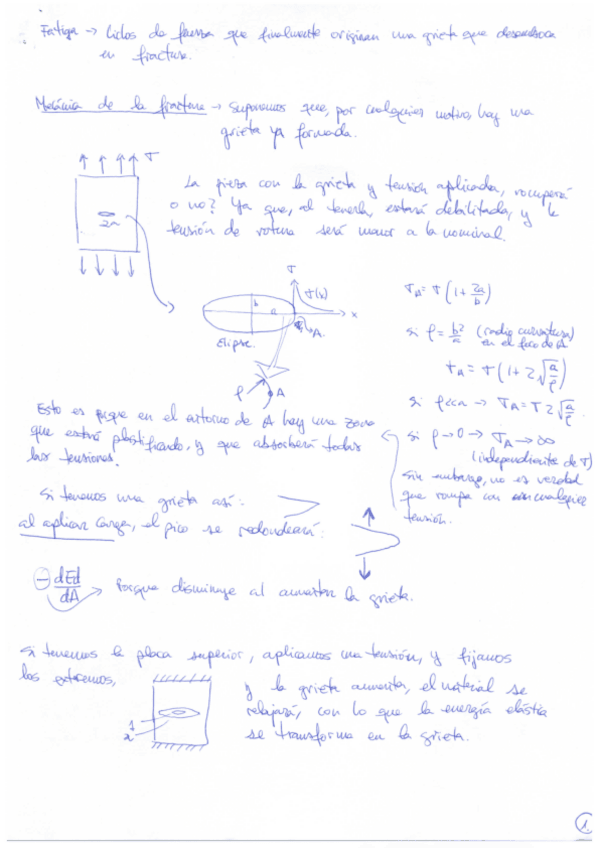 Fatiga → Ciclos de fuerza que finalmente originan una grieta que desemboca
en fractura.
Mecánica de la fractura → Suponemos que, por cualquier motivo, hay una
grieta ya formada.
σ
2a
La pieza con la grieta y tensión aplicada, romperá
o no? Ya que, al tenerla, estará debilitada, y la
tensión de rotura será menor a la nominal.
σ
σ(x)
b
a
x
A
Elipse.
ρ
A
σA = σ(1 + 2a/b)
si ρ = b²/a (radio curvatura)
en el pico de A
σA = σ(1 + 2√(a/ρ))
si ρ<<a → σA = σ2√(a/ρ)
si ρ→0 → σA → ∞
(independiente de σ)
Sin embargo, no es verdad
que rompa con cualquier
tensión.
Esto es porque en el entorno de A hay una zona
que estará plastificando, y que absorberá todas
las tensiones.
Si tenemos una grieta así:
al aplicar carga, el pico se redondeará:
- dEd/dA → Porque disminuye al aumentar la grieta.
Si tenemos la placa superior, aplicamos una tensión, y fijamos
los extremos,
1
2
y la grieta aumenta, el material se
relajará, con lo que la energía elástica
se transforma en la grieta.
1.